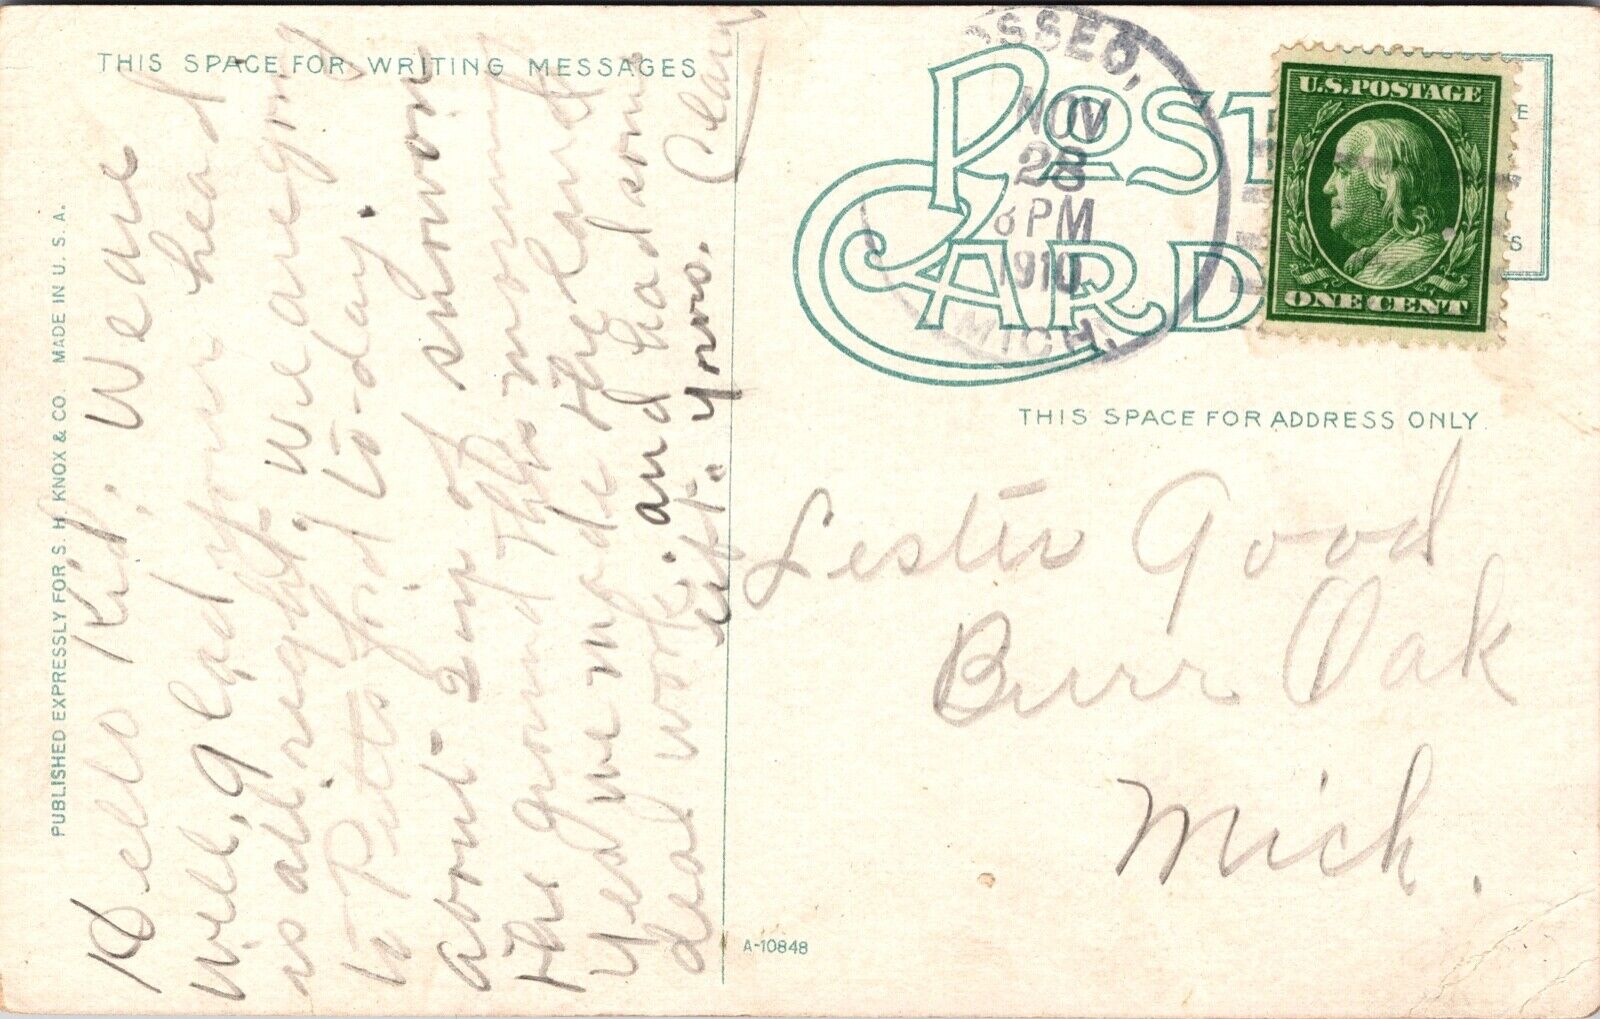 THIS SPACE FOR WRITING MESSAGES
PUBLISHED EXPRESSLY FOR S. H. KNOX & CO. MADE IN U. S. A.
Hello Kid: We are
well, glad your head
is all right. We are going
to Pittsford to-day.
about 2 in of snow on
the ground this morning
Yes we made the land
deal work. and had some
left. Yours. Clary
OSSEO,
NOV
28
6PM
1910
MICH.
POST CARD
U.S. POSTAGE
ONE CENT
THIS SPACE FOR ADDRESS ONLY
Lester Good
Burr Oak
Mich.
A-10848